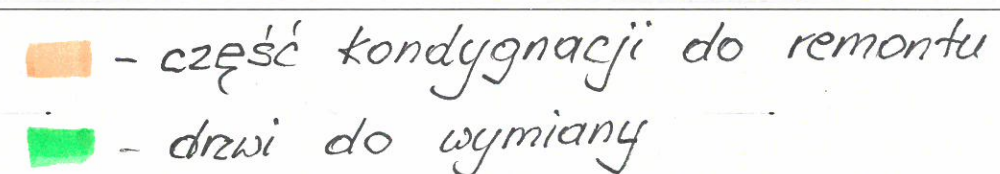 - część kondygnacji do remontu
- drzwi do wymiany